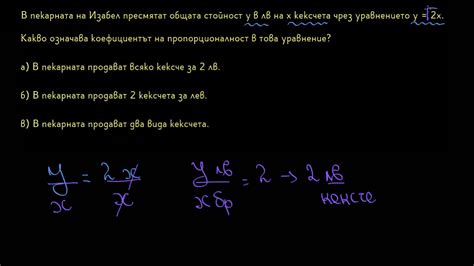 В пекарната на Изабел пресмятат общата стойност y в лв на x кексчета чрез уравнението y = 2x.
Какво означава коефициентът на пропорционалност в това уравнение?
а) В пекарната продават всяко кексче за 2 лв.
б) В пекарната продават 2 кексчета за лев.
в) В пекарната продават два вида кексчета.
y/x = 2x/x y лв/x бр = 2 → 2 лв/кексче